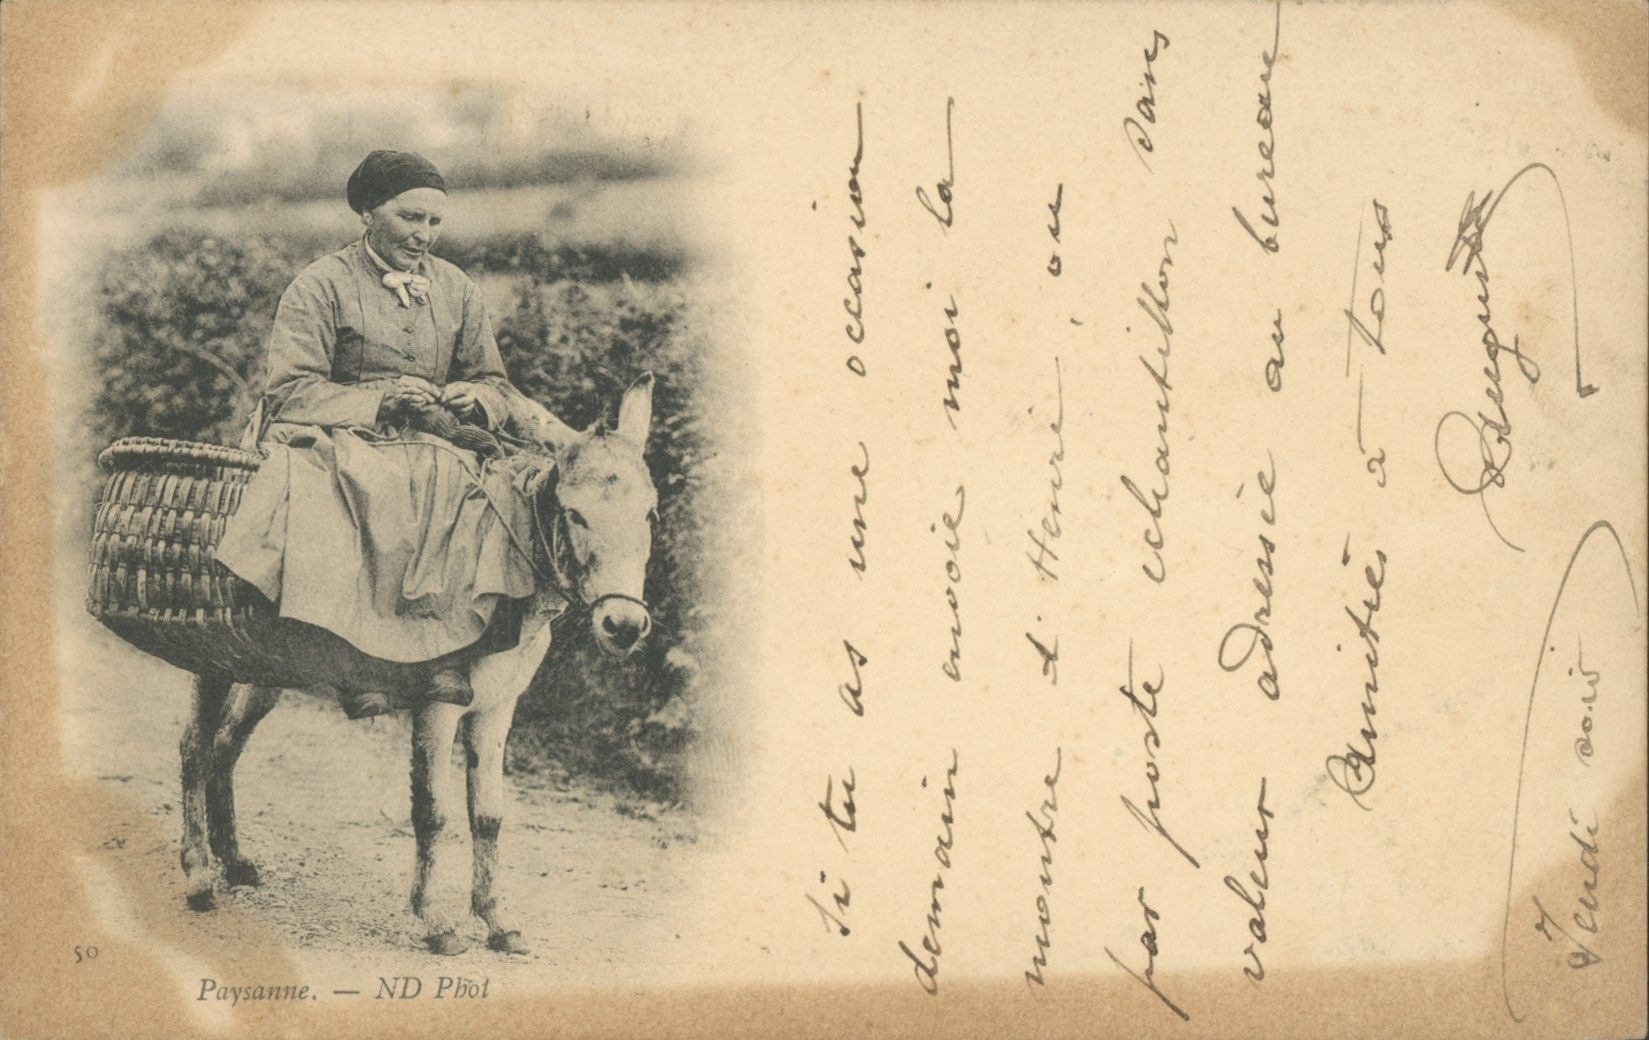 Si tu as une occasion
demain envoie moi la
montre d'Henri, ou
par poste echantillon sans
valeur adressée au bureau
Amitiés à tous
Auguste
Jeudi soir
50
Paysanne. — ND Phot